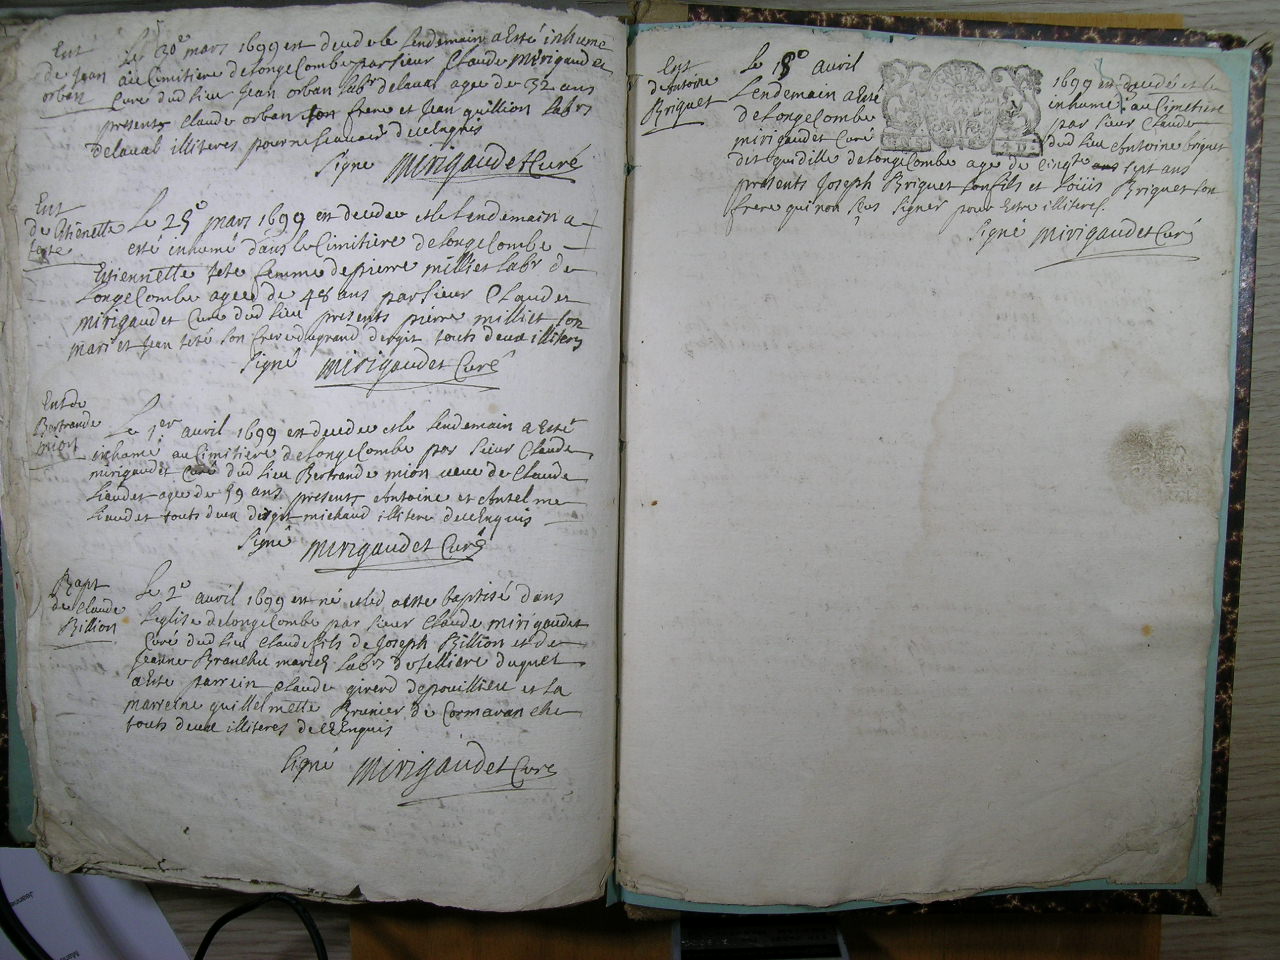 Ent
de Jean
orban
Le 30e mars 1699 est decede et le lendemain a esté inhumé
au Cimitiere de longeCombe par sieur Claude mirigaudet
Curé dud lieu Jean orban labr delaval age de 32 ans
presents Claude orban son frere et Jean guillion labrs
delaval illiteres pour ne scavoir de ce enquis
signé mirigaudet Curé
Ent
de Etienette
teté
Le 25e mars 1699 est decedee et le lendemain a
esté inhumé dans le Cimitiere de longeCombe
Etiennette teté femme de pierre milliet labr de
longeCombe agee de 48 ans par sieur Claude
mirigaudet Curé dud lieu presents pierre milliet son
mari et Jean teté son frere du grand dergit touts deux illiteres
signé mirigaudet Curé
Ent de
Bertrande
mion
Le 1er avril 1699 est decedee et le lendemain a esté
inhumé au Cimitiere de longeCombe par sieur Claude
mirigaudet Curé dud lieu Bertrande mion veuve de Claude
liaudet agee de 59 ans presents Antoine et Anselme
liaudet touts deux dergit michaud illitere de ce enquis
signé mirigaudet Curé
Bapt
de Claude
Billion
Le 2e avril 1699 est né et led a esté baptisé dans
leglise de longeCombe par sieur Claude mirigaudet
Curé dud lieu Claude fils de Joseph Billion et de
Jeanne Branche mariés labrs de lelliere duquel
a esté parrein Claude girerd de pouillieu et la
marreine guillelmette Brunier de Cormaranche
touts deux illiteres de ce enquis
signé mirigaudet Curé
Ent
de Antoine
Briquet
Le 18e avril 1699 est decedé et le
lendemain a esté inhumé au Cimetiere
de longeCombe par sieur Claude
mirigaudet Curé dud lieu Antoine briquet
dit quidille de longeCombe age de cinqte sept ans
présents Joseph Briquet son fils et loüis Briquet son
frere qui non sceu signer pour estre illiteres.
signé mirigaudet Curé